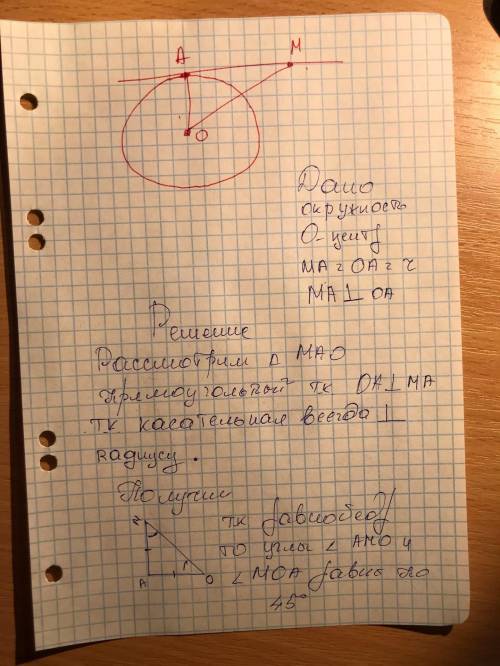 A M
O
Дано
окружность
О-центр
MA = OA = r
MA ⊥ OA
Решение
Рассмотрим △ MAO
прямоугольный тк OA ⊥ MA
тк касательная всегда ⊥
радиусу.
Получим
тк равнобед/
то углы ∠ AMO и
∠ MOA равны по
45°
M
A O